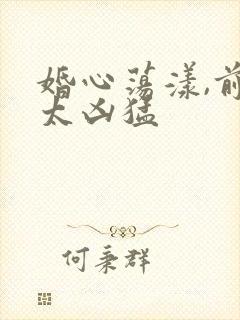 婚心荡漾,前
太凶猛
何秉群